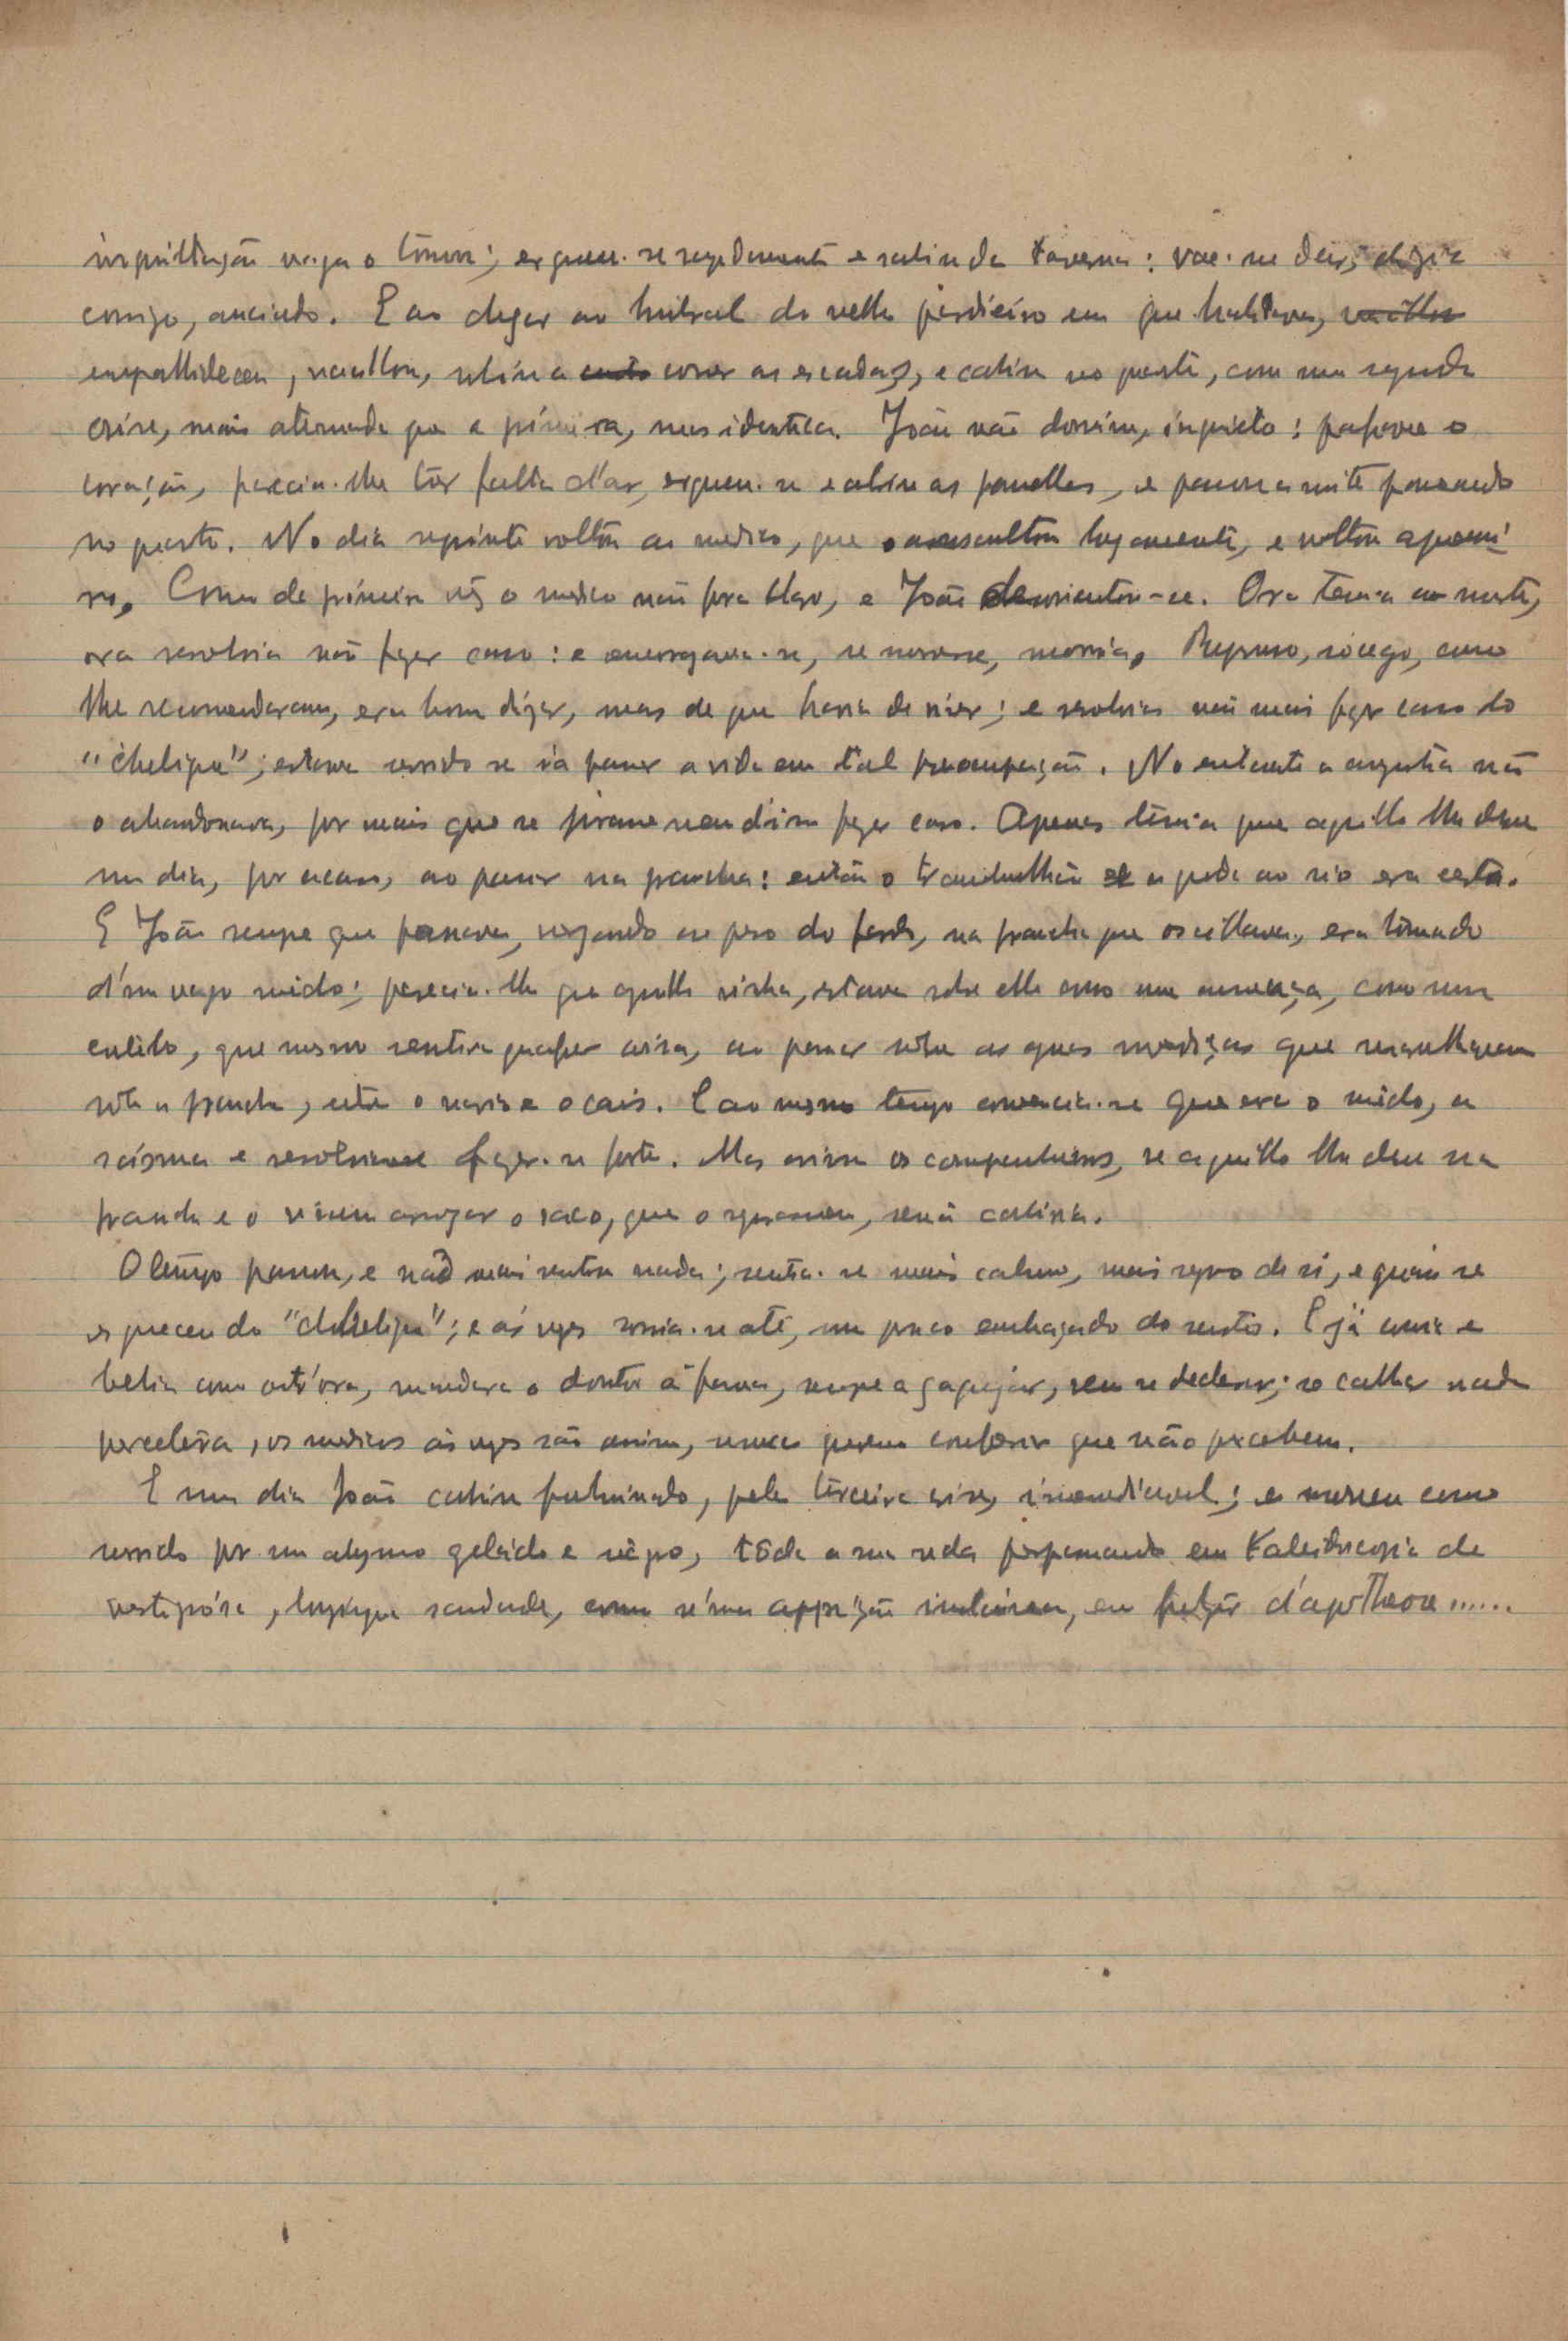 inquietação vaga o tomou; ergueu-se rapidamente e sahiu da taverna: vae-me dar, dizia
comsigo, anciado. E ao chegar ao humbral do velho pardieiro em que habitava, vacillou
empallideceu, vacillou, subiu a custo correr as escadas, e cahiu no quarto, com uma segunda
crise, mais atenuada que a primeira, mas identica. João não dormiu, inquieto: palpava o
coração, parecia-lhe ter falta d'ar, ergueu-se e abriu as janellas, e passou a noite passeando
no quarto. No dia seguinte voltou ao medico, que o auscultou longamente, e voltou a
Como da primeira vez o medico não fora claro, e João desorientou-se. Ora temia a morte,
ora resolvia não fazer caso: e encorajava-se, se morresse, morria. Repouso, socego, como
lhe recomendaram, era bom dizer, mas de que havia de viver; e resolvia não mais fazer caso do
"chelique"; estava servido se ia passar a vida em tal preocupação. No entanto a angustia não
o abandonava, por mais que se jurasse não fazer caso. Apenas temia que aquillo lhe desse
um dia, por acaso, ao passar na prancha: então o trambulhão e a queda ao rio era certa.
E João sempre que passava, vergando ao peso do fardo, na prancha que oscillava, era tomado
d'um vago medo; parecia-lhe que aquillo vinha, estava sobre elle como uma ameaça, como um
cutelo, que mesmo sentira qualquer coisa, ao passar sobre as aguas que
sob a prancha, entre o navio e o cais. E ao mesmo tempo convencia-se que era o medo, a
scisma e resolvia fazer-se forte. Mas avisou os companheiros, se aquillo lhe desse na
prancha e o vissem arrojar o saco, que o segurassem, senão cahiria.
O tempo passou, e não mais sentiu nada; sentia-se mais calmo, mais seguro de si, e quasi se
esqueceu do "chelique"; e ás vezes ria-se até, um pouco embaçado do susto. E já comia e
bebia como outr'ora, mandara o doutor á fava, sempre a gaguejar, sem se declarar; se calhar nada
percebêra, os medicos ás vezes são assim, nunca querem confessar que não percebem.
E um dia João cahiu fulminado, pela terceira crise, irremediavel; e morreu como
sorvido por um abysmo gelado e negro, tôda a sua vida perpassando em Kaleidoscopia de
vertigem, saudade, como n'uma apparição, em d'apotheose......